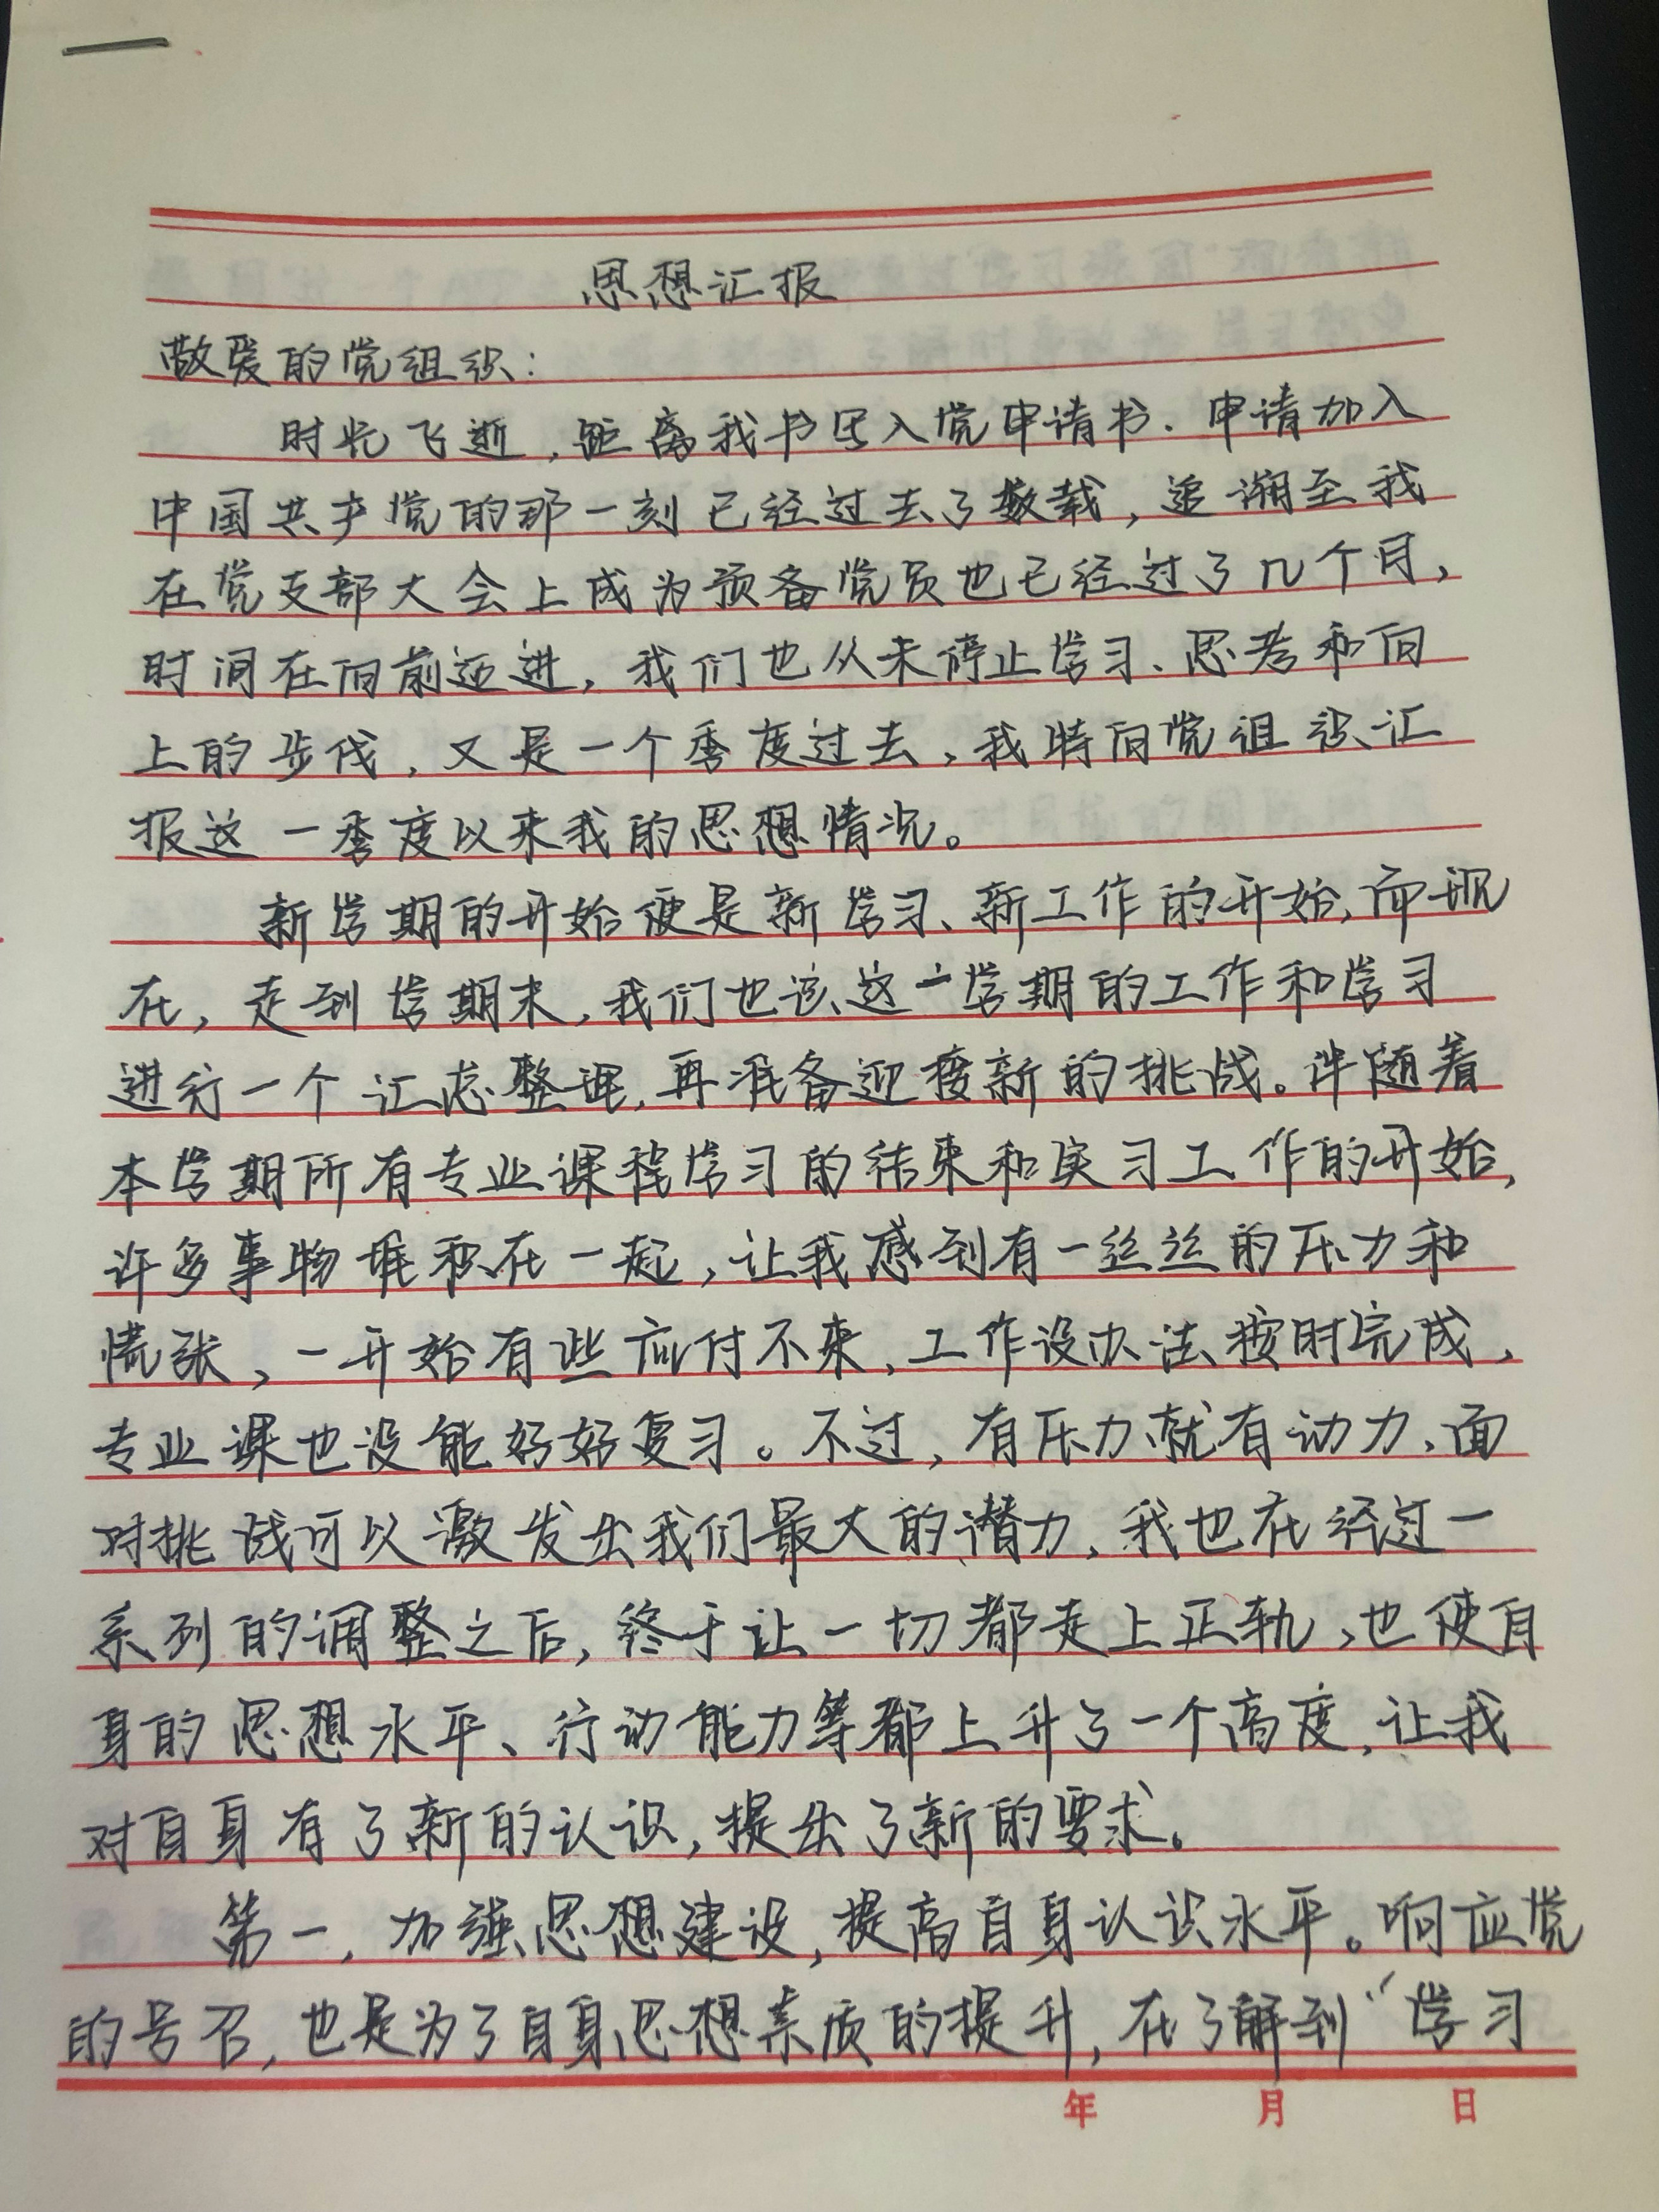 思想汇报
敬爱的党组织：
时光飞逝，距离我书写入党申请书、申请加入
中国共产党的那一刻已经过去了数载，追溯至我
在党支部大会上成为预备党员也已经过了几个月，
时间在向前迈进，我们也从未停止学习、思考和向
上的步伐，又是一个季度过去，我特向党组织汇
报这一季度以来我的思想情况。
新学期的开始便是新学习、新工作的开始，而现
在，走到学期末，我们也该这一学期的工作和学习
进行一个汇总整理，再准备迎接新的挑战。伴随着
本学期所有专业课程学习的结束和实习工作的开始，
许多事物堆积在一起，让我感到有一丝丝的压力和
慌张，一开始有些应付不来，工作没办法按时完成，
专业课也没能好好复习。不过，有压力就有动力，面
对挑战可以激发出我们最大的潜力，我也在经过一
系列的调整之后，终于让一切都走上正轨，也使自
身的思想水平、行动能力等都上升了一个高度，让我
对自身有了新的认识，提出了新的要求。
第一，加强思想建设，提高自身认识水平。响应党
的号召，也是为了自身思想素质的提升，在了解到“学习
年 月 日